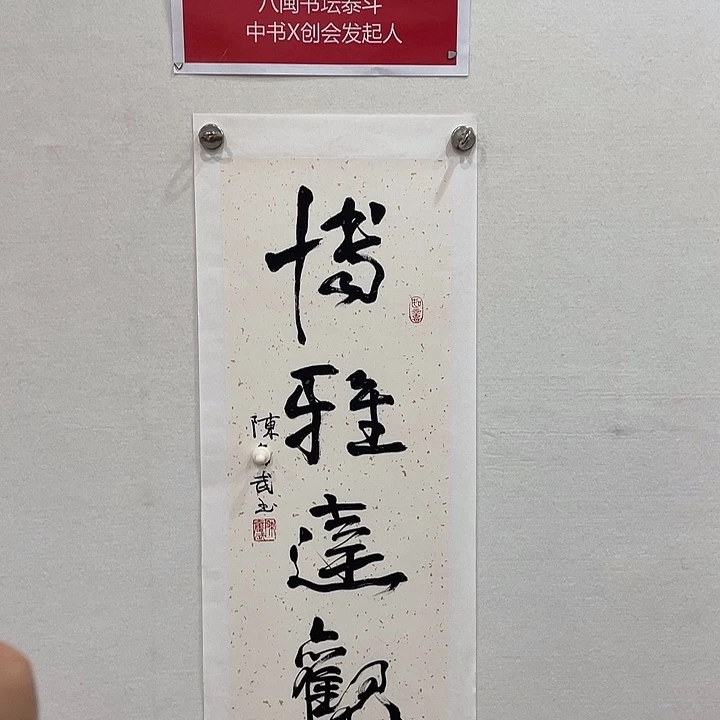 八闽书坛泰斗
中书X创会发起人
博雅達觀
陳
武书